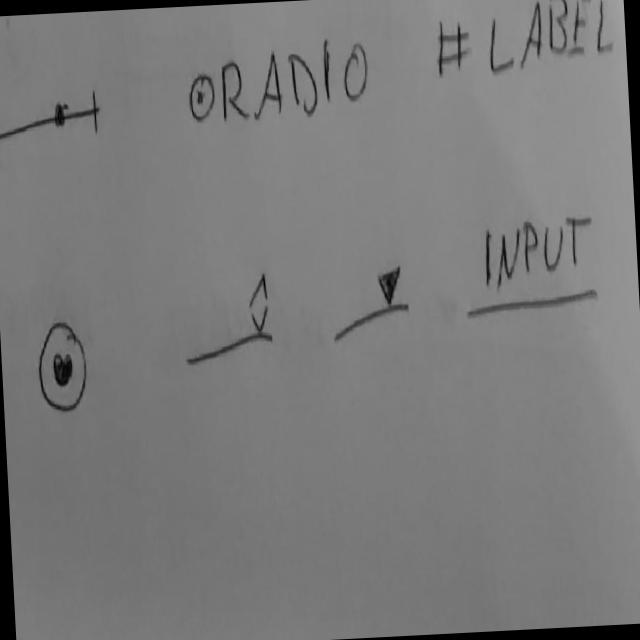 ⊙RADIO # LABEL
INPUT